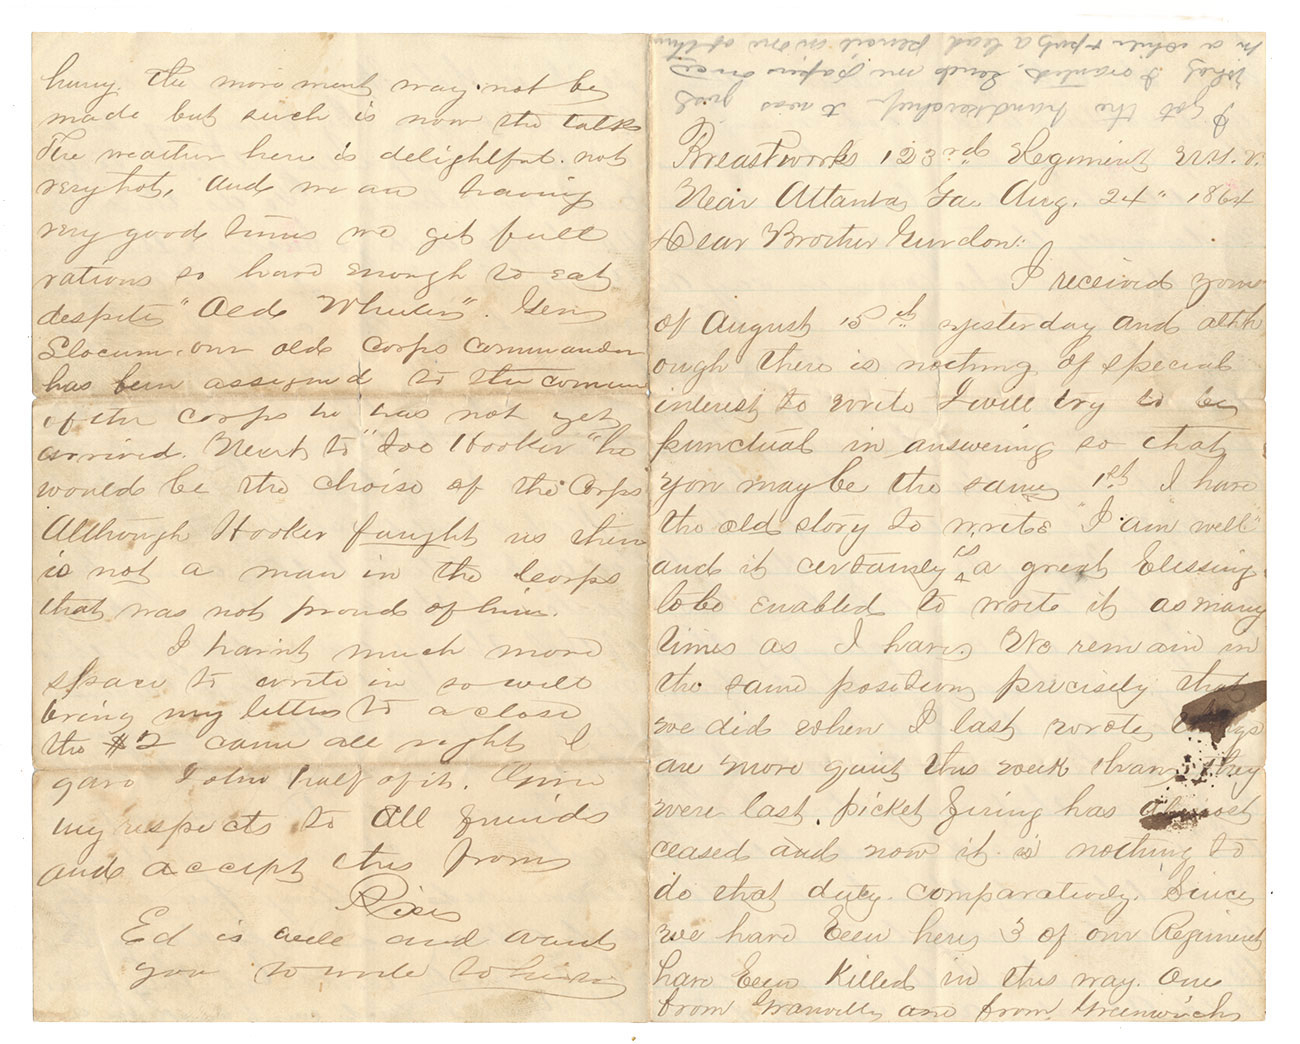 I got the handkerchief. it was just
What I wanted, Send me papers once
in a while & put a lead pencil in one of them
Breastworks 123rd Regiment N.Y.V.
Near Atlanta, Ga. Aug. 24" 1864
Dear Brother Gurdon:
I received yours
of August 15th yesterday and alth
ough there is nothing of special
interest to write I will try to be
punctual in answering so that
you may be the same 1st I have
the old story to write "I am well"
and it certainly is a great blessing
to be enabled to write it as many
times as I have. We remain in
the same position, precisely that
we did when I last wrote,
are more quiet this week than they
were last. picket firing has almost
ceased and now it is nothing to
do that duty comparatively. Since
we have been here, 3 of our Regiment
have been killed in this way. One
from Granville and from Greenwich
hurry. The movement may not be
made but such is now the talk
The weather here is delightful. not
very hot, and we are having
very good times we get full
rations so have enough to eat
despite "Old Wheeler". Gen
Slocum, our old corps commander
has been assigned to the comm
of the corps he has not yet
arrived. Next to "Joe Hooker" he
would be the choise of the Corps
Although Hooker fought us there
is not a man in the Corps
that was not proud of him.
I haint much more
space to write in so will
bring my letter to a close
the $2 came all right I
gave John half of it. Give
my respects to all friends
and accept this from
Rice
Ed is well and wants
you to write to him